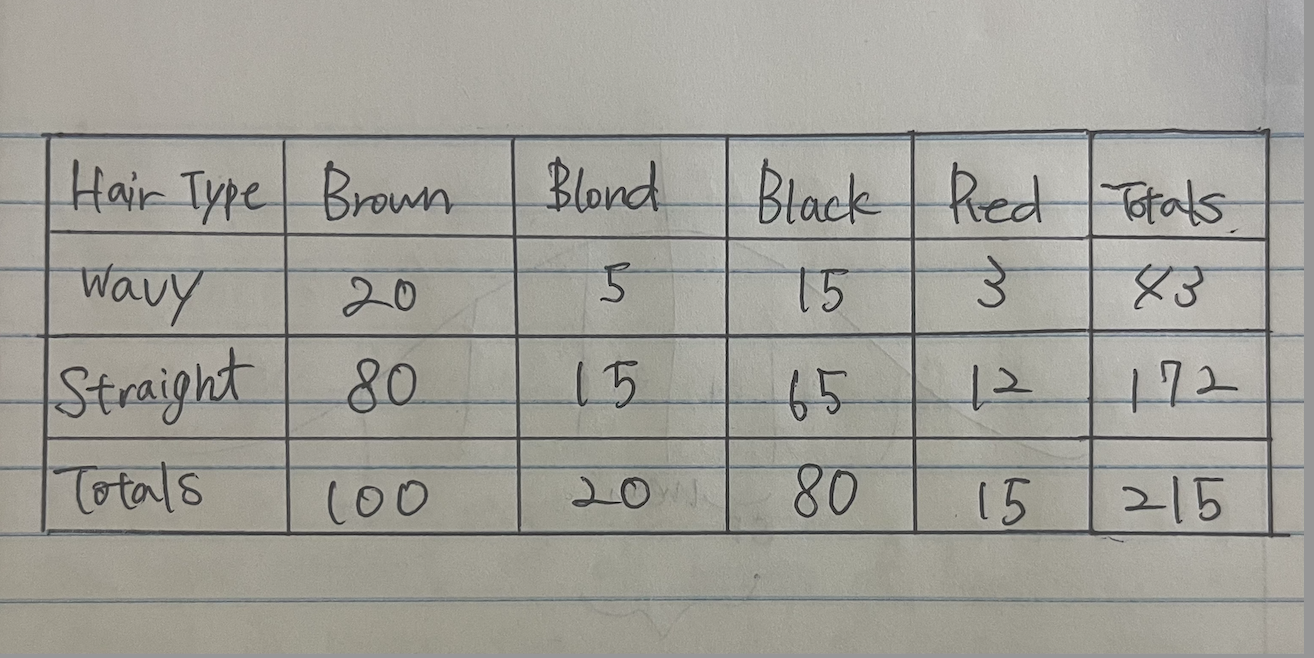 Hair Type Brown Blond Black Red Totals
Wavy 20 5 15 3 43
Straight 80 15 65 12 172
Totals 100 20 80 15 215